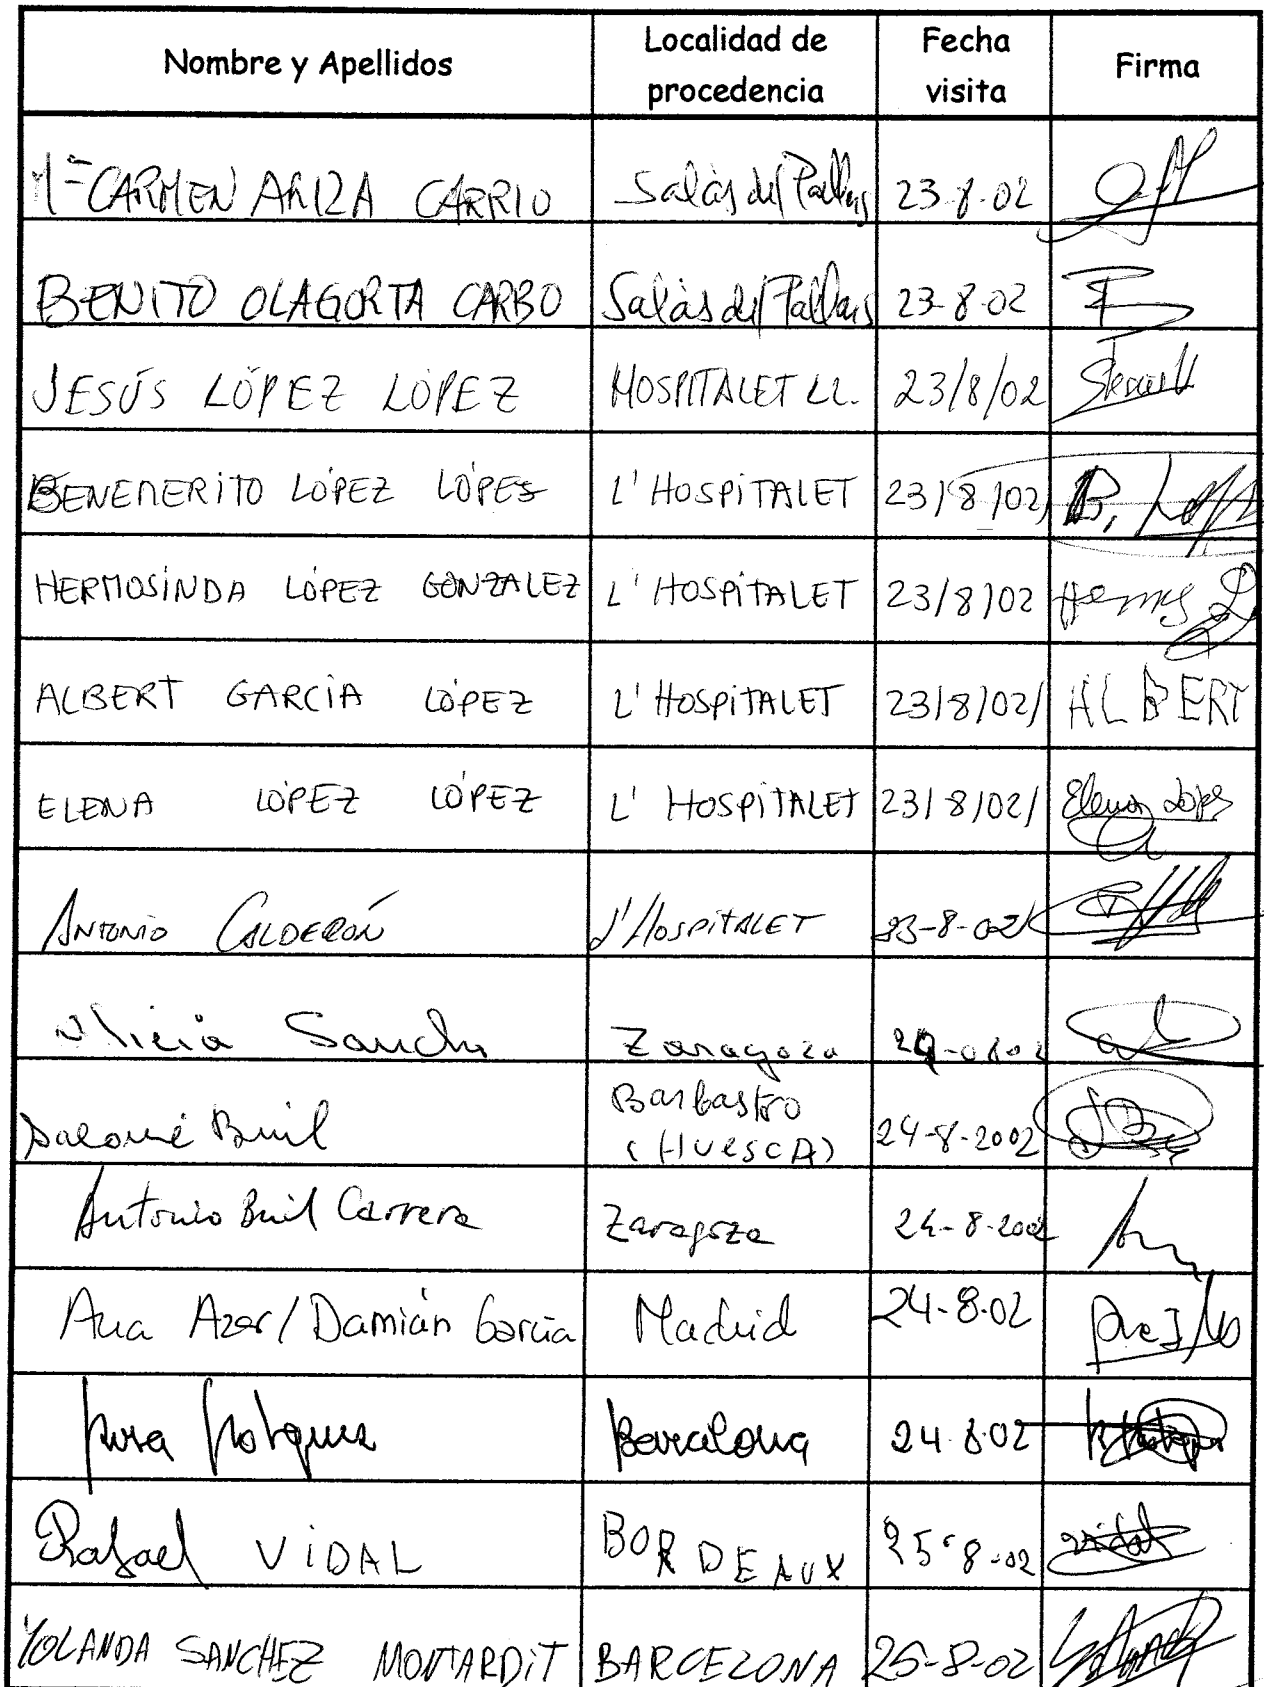 Nombre y Apellidos Localidad de procedencia Fecha visita Firma
Mª CARMEN ARIZA CARRIO Salàs del Pallars 23-8-02
BENITO OLAGORTA CARBO Salàs del Pallars 23-8-02
JESÚS LÓPEZ LÓPEZ HOSPITALET LL. 23/8/02
BENEMERITO LÓPEZ LÓPES L'HOSPITALET 23/8/02/ B. López
HERMOSINDA LÓPEZ GONZALEZ L'HOSPITALET 23/8/02
ALBERT GARCÍA LÓPEZ L'HOSPITALET 23/8/02/ ALBERT
ELENA LÓPEZ LÓPEZ L'HOSPITALET 23/8/02/ Elena López
ANTONIO CALDERÓN L'HOSPITALET 23-8-02
Alicia Zaragoza
Salomé Buil Barbastro (HUESCA) 24-8-2002
Antonio Buil Carrera Zaragoza 24-8-2002
Ana Azor/Damián García Madrid 24-8-02
Barcelona 24-8-02
Rafael VIDAL BORDEAUX 25-8-02 Vidal
YOLANDA SANCHEZ MONTARDIT BARCELONA 25-8-02